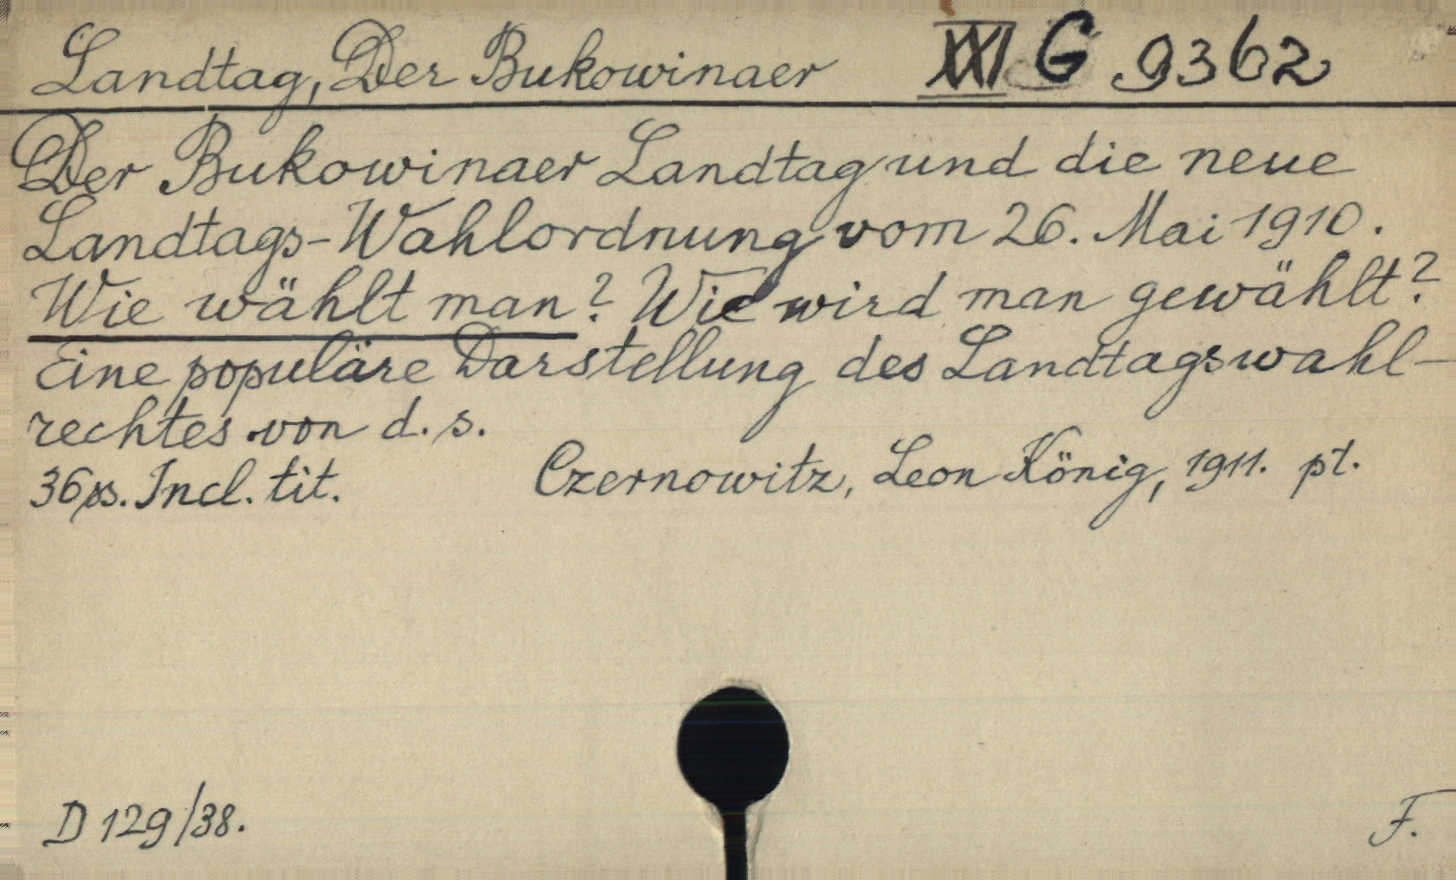 Landtag, Der Bukowinaer XXI G 9362
Der Bukowinaer Landtag und die neue
Landtags-Wahlordnung vom 26. Mai 1910.
Wie wählt man? Wie wird man gewählt?
Eine populäre Darstellung des Landtagswahl-
rechtes von d. s.
36 ss. Incl. tit. Czernowitz, Leon König, 1911. pt.
D 129/38. F.